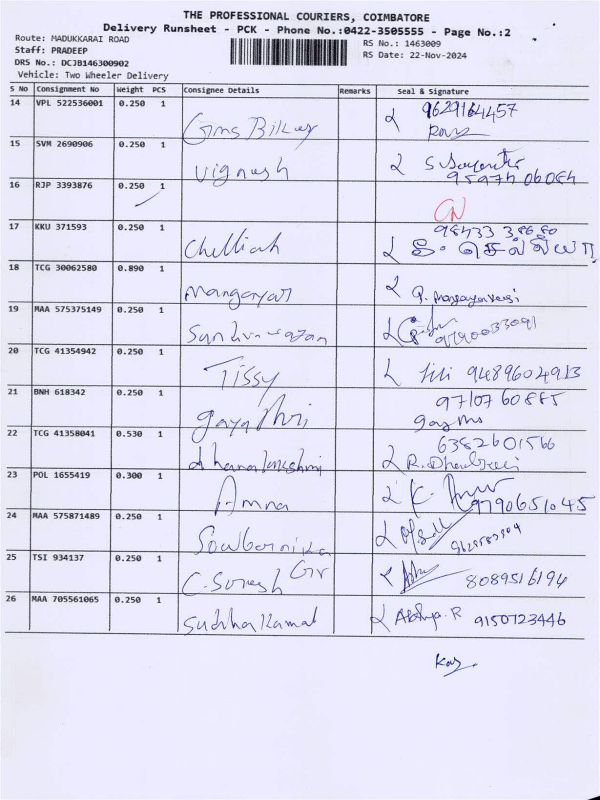 THE PROFESSIONAL COURIERS, COIMBATORE
Delivery Runsheet - PCK - Phone No.:0422-3505555 - Page No.:2
Route: MADUKKARAI ROAD
RS No.: 1463009
Staff: PRADEEP
RS Date: 22-Nov-2024
DRS No.: DCJB146300902
Vehicle: Two Wheeler Delivery
S No Consignment No Weight PCS Consignee Details Remarks Seal & Signature
14 VPL 522536001 0.250 1 9629164457
15 SVM 2690906 0.250 1 Vignesh
16 RJP 3393876 0.250 1
17 KKU 371593 0.250 1 Chelliah
18 TCG 30062580 0.890 1
19 MAA 575375149 0.250 1
20 TCG 41354942 0.250 1 Tissy 9489604913
21 BNH 618342 0.250 1 gayathri
22 TCG 41358041 0.530 1 dhanalakshmi 6382601566
23 POL 1655419 0.300 1 Amna 9790651045
24 MAA 575871489 0.250 1 Sowbarnika
25 TSI 934137 0.250 1 C. Suresh 8089516194
26 MAA 705561065 0.250 1 Sudhakamal 9150723446